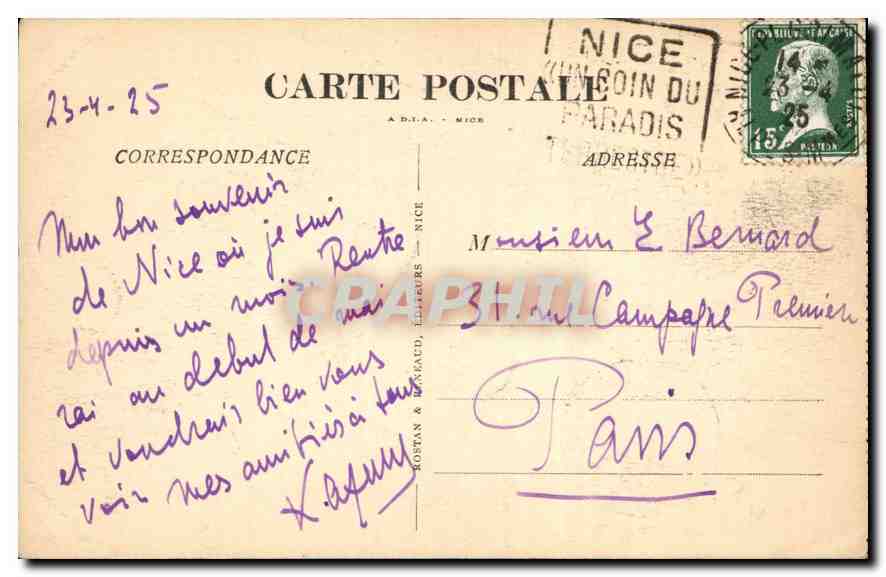 23-4-25
CARTE POSTALE
A D.I.A. - NICE
CORRESPONDANCE
ADRESSE
NICE
"UN COIN DU
PARADIS
RÉPUBLIQUE FRANÇAISE
14
23-4
25
15c
PASTEUR
Mon bon souvenir
de Nice où je suis
depuis un mois Rentre
rai au début de mai
et voudrais bien vous
voir mes amitiés à tous
ROSTAN & MUNEAUD, EDITEURS — NICE
Monsieur E Bernard
31 rue Campagne Première
Paris
CPAPHIL